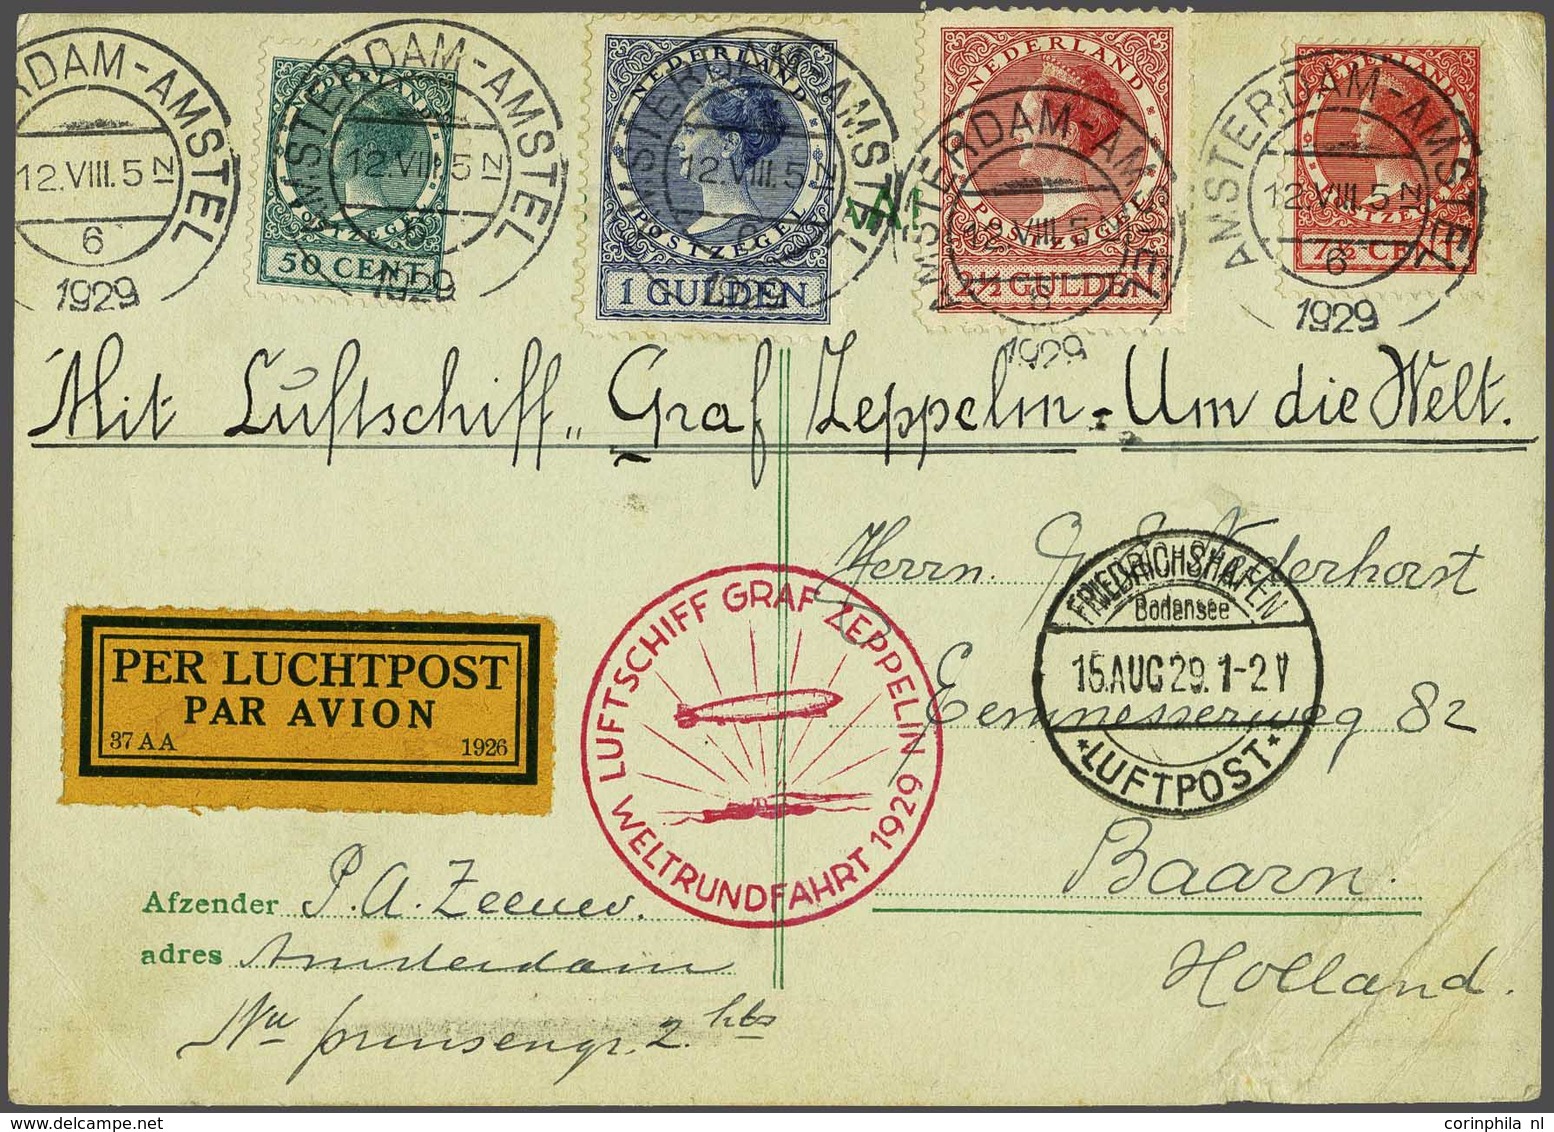 AMSTERDAM-AMSTEL
12.VIII.5 N
6
1929
NEDERLAND
POSTZEGEL
50 CENT
AMSTERDAM-AMSTEL
12.VIII.5 N
6
1929
NEDERLAND
POSTZEGEL
1 GULDEN
AMSTERDAM-AMSTEL
12.VIII.5 N
6
1929
NEDERLAND
POSTZEGEL
2½ GULDEN
AMSTERDAM-AMSTEL
12.VIII.5
6
1929
NEDERLAND
POSTZEGEL
7½ CENT
AMSTERDAM-AMSTEL
12.VIII.5 N
6
1929
Mit Luftschiff „Graf Zeppelin - Um die Welt.
Herrn. Nederhorst
Eemnesserweg 82
Baarn.
Holland.
FRIEDRICHSHAFEN
Bodensee
15.AUG.29.1-2 V
*LUFTPOST*
LUFTSCHIFF GRAF ZEPPELIN
WELTRUNDFAHRT 1929
PER LUCHTPOST
PAR AVION
37 AA 1926
Afzender P.A. Zeeuw.
adres Amsterdam
2 hs
corinphila nl